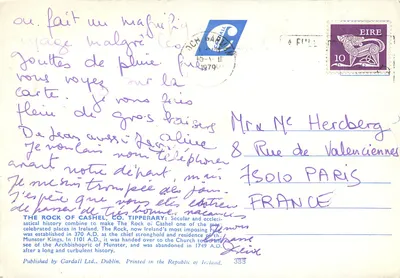 on fait un magnifique
voyage malgré les
gouttes de pluie que
vous voyez sur la
carte. Je vous fais
pleins de gros baisers
De Jean aussi.
Je voulais vous téléphoner
avant notre départ, mais
Je me suis trompée de jour.
J'espère que vous êtes
de passer de très bonnes vacances
1979
EIRE
10
Mr et Mc Herdberg
8 Rue de Valenciennes
75010 PARIS
FRANCE
THE ROCK OF CASHEL, CO. TIPPERARY: Secular and eccles-
iastical history combine to make The Rock of Cashel one of the most
celebrated places in Ireland. The Rock, now Ireland's most imposing
was established in 370 A.D. as the chief stronghold and residence
Munster Kings. In 1101 A.D., it was handed over to the Church
see of the Archbishopric of Munster, and was abandoned in 1749 A.D.
after a long and turbulent history.
Published by Cardall Ltd., Dublin. Printed in the Republic of Ireland.
333